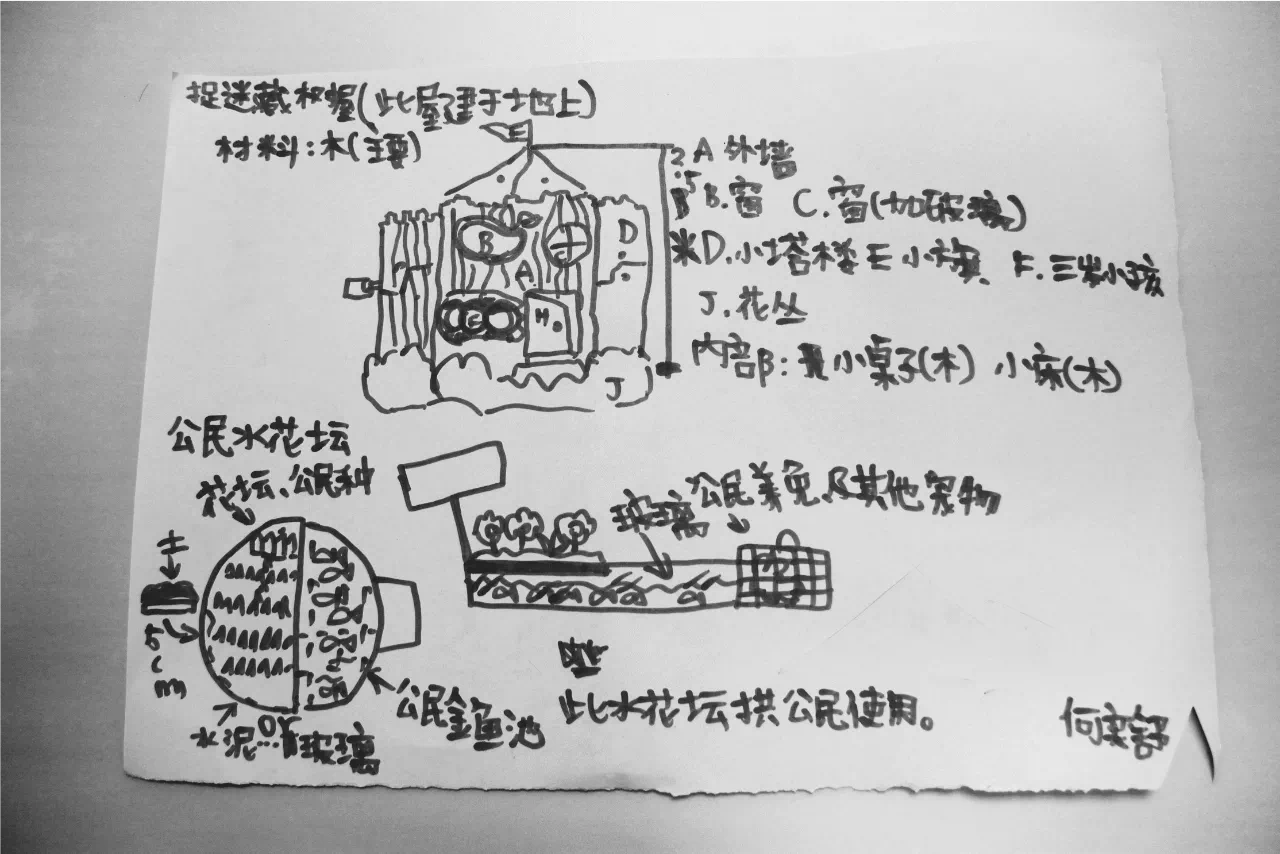 捉迷藏树屋(此屋建于地上)
材料:木(主要)
E
2.5米
A 外墙
B.窗 C.窗(加玻璃)
D.小塔楼 E 小旗 F.三岁小孩
J.花丛
内部:小桌子(木) 小床(木)
B
C
D
A
H
J
公民水花坛
花坛、公民种
土
5cm
水泥…or玻璃
公民金鱼池
玻璃
公民养兔及其他宠物
此水花坛拱公民使用。